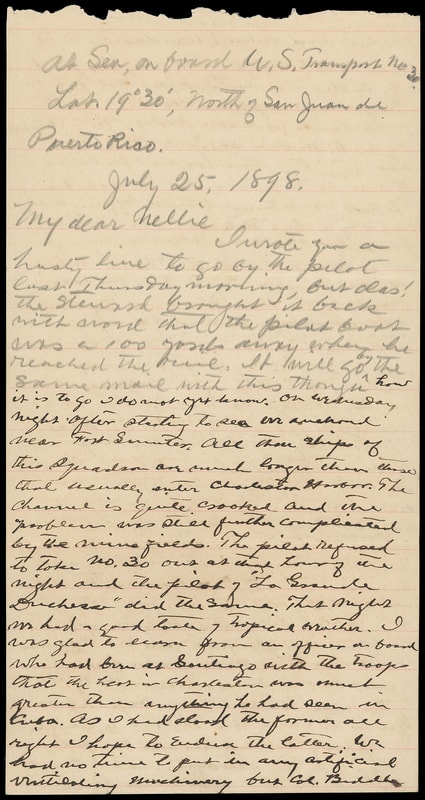 At Sea, on board U.S. Transport No 30.
Lat. 19°30', North of San Juan de
Puerto Rico.
July 25, 1898.
My dear Nellie
I wrote you a
hasty line to go by the pilot
last Thursday morning, but alas!
the steward brought it back
with word that the pilot boat
was a 100 yards away when he
reached the rail. It will go by the
same mail with this though how
it is to go I do not yet know. On Wednesday
night after starting to sea we anchored
near Fort Sumter. All the ships of
this Squadron are much longer than those
that usually enter Charleston Harbor. The
channel is quite crooked and the
problem was still further complicated
by the mine fields. The pilot refused
to take No. 30 out at that hour of the
night and the pilot of "La Grande
Duchesse" did the same. That night
we had a good taste of tropical weather. I
was glad to learn from an officer on board
who had been at Santiago with the troops
that the heat in Charleston was much
greater than anything he had seen in
Cuba. As I had stood the former all
right I hope to endure the latter. We
had no time to put in any artificial
ventilating machinery but Col. Biddle